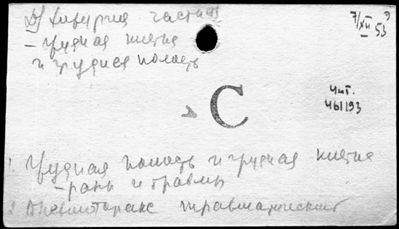 б) хирургия частная
7/XII 53
– грудная клетка
и грудная полость
Чит.
461193
С
1. Грудная полость и грудная клетка
– раны и травмы
2. Пневмоторакс травматический